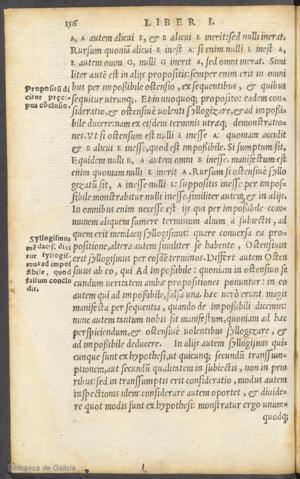 156 LIBER I.
A, A autem alicui E, & B alicui E inerit: sed nulli inerat.
Rursum quoniã alicui E inest A: si enim nulli E inest A,
E autem omni G, nulli G inerit A, sed omni inerat. Simi
liter autẽ est in alijs propositis: semper enim erit in omni
bus per impoßibile ostensio, ex sequentibus, & quibus
sequitur utrunq;. Et in unoquoq; proposito: eadem con-
sideratio, & ostensiue uolenti syllogizare, & ad impoßi-
bile ducere: nam ex eisdem terminis utræq; demonstratio-
nes. Vt si ostensum est nulli E inesse A: quoniam accidit
& B alicui E inesse, quod est impoßibile. Si sumptum sit,
E quidem nulli B, A autem omni B inesse. manifestum est
enim quoniam nulli E inerit A. Rursum si ostensiuè syllo
gizatũ sit, A inesse nulli E: supposito inesse per impos-
sibile monstrabitur nulli inesse. similiter autem & in alijs.
In omnibus enim necesse est ijs qui per impoßibile com-
munem aliquem sumere terminum alium à subiectis, ad
quem erit mendacij syllogismus: quare conuersa ea pro-
positione, altera autem similiter se habente, Ostensiuus
erit syllogismus per eosdẽ terminos. Differt autem Osten
siuus ab eo, qui Ad impoßibile: quoniam in ostensiuo se
cundum ueritatem ambæ propositiones ponuntur: in eo
autem qui ad impoßibile, falsa una. hæc uerò erunt magis
manifesta per sequentia, quando de impoßibili dicemus:
nunc autem tantum nobis sit manifestum, quoniam ad hæc
perspiciendum, & ostensiuè uolentibus syllogizare, &
ad impoßibile deducere. In alijs autem syllogismis qui-
cunque sunt ex hypothesi, ut quicunq; secundũ transsum-
ptionem, aut secundũ qualitatem in subiectis, non in prio
ribus: sed in transsumptis erit consideratio, modus autem
inspectionis idem: considerare autem oportet, & diuide-
re quot modis sunt ex hypothesi: monstratur ergo unum-
quodq;
Propositũ di
citur præci-
pua cõclusio.
Syllogismus
mẽdacij, dici
tur syllogis-
mus ad impos
sibile, quod
falsum conclu
dit.
Biblioteca de Galicia